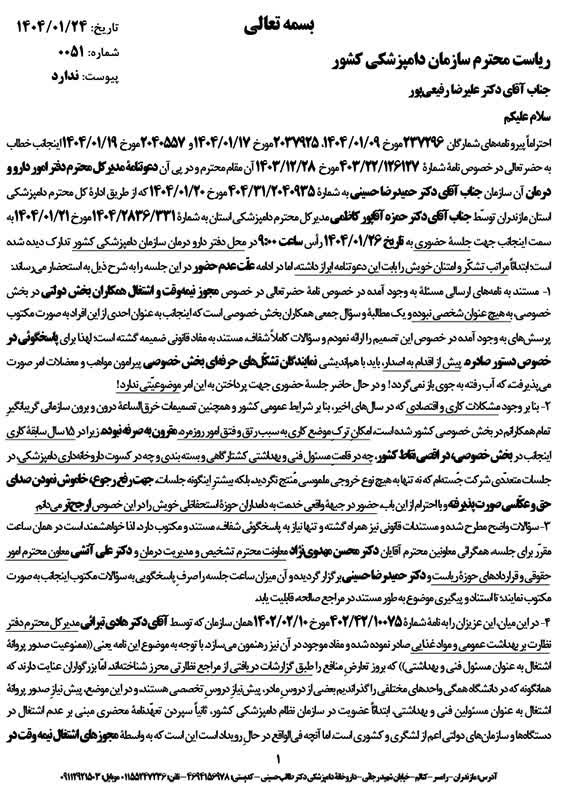 بسمه تعالی
تاریخ: ۱۴۰۴/۰۱/۲۴
شماره: ۰۰۵۱
پیوست: ندارد
ریاست محترم سازمان دامپزشکی کشور
جناب آقای دکتر علیرضا رفیعی‌پور
سلام علیکم
احتراماً پیرو نامه‌های شمارگان ۲۳۷۲۹۶ مورخ ۱۴۰۴/۰۱/۰۹، ۲۰۳۷۹۲۵ مورخ ۱۴۰۴/۰۱/۱۷ و ۲۰۴۰۵۵۷ مورخ ۱۴۰۴/۰۱/۱۹ اینجانب خطاب
به حضرتعالی در خصوص نامهٔ شمارهٔ ۴۰۳/۲۲/۱۲۶۱۲۷ مورخ ۱۴۰۳/۱۲/۲۸ آن مقام محترم و در پی آن دعوتنامهٔ مدیر کل محترم دفتر امور دارو و
درمان آن سازمان جناب آقای دکتر حمیدرضا حسینی به شمارهٔ ۴۰۴/۳۱/۲۰۴۰۹۳۵ مورخ ۱۴۰۴/۰۱/۲۰ که از طریق ادارهٔ کل محترم دامپزشکی
استان مازندران توسّط جناب آقای دکتر حمزه آقاپور کاظمی مدیر کل محترم دامپزشکی استان به شمارهٔ ۱۴۰۴/۲۸۳۶/۳۳۱ مورخ ۱۴۰۴/۰۱/۲۱ به
سمت اینجانب جهت جلسهٔ حضوری به تاریخ ۱۴۰۴/۰۱/۲۶ رأس ساعت ۹:۰۰ در محل دفتر دارو درمان سازمان دامپزشکی کشور تدارک دیده شده
است؛ ابتدائاً مراتب تشکّر و امتنان خویش را بابت این دعوتنامه ابراز داشته، اما در ادامه علّت عدم حضور در این جلسه را به شرح ذیل به استحضار می‌رساند:
۱- مستند به نامه‌های ارسالی مسئلهٔ به وجود آمده در خصوص نامهٔ حضرتعالی در خصوص مجوز نیمه‌وقت و اشتغال همکاران بخش دولتی در بخش
خصوصی، به هیچ عنوان شخصی نبوده و یک مطالبهٔ و سؤال جمعی همکاران بخش خصوصی است که اینجانب به عنوان احدی از این افراد به صورت مکتوب
پرسش‌های به وجود آمده در خصوص این تصمیم را ارائه نمودم و سؤالات کاملاً شفاف، مستند به مفاد قانونی ضمیمه گشته است؛ لهذا برای پاسخگوئی در
خصوص دستور صادره، پیش از اقدام به اصدار، باید با هم‌اندیشی نمایندگان تشکّل‌های حرفه‌ای بخش خصوصی پیرامون مواهب و معضلات امر صورت
می‌پذیرفت، که آب رفته به جوی باز نمی‌گردد! و در حال حاضر جلسهٔ حضوری جهت پرداختن به این امر موضوعیّتی ندارد!
۲- بنا بر وجود مشکلات کاری و اقتصادی که در سال‌های اخیر، بنا بر شرایط عمومی کشور و همچنین تصمیمات خرق‌الساعهٔ درون و برون سازمانی گریبانگیر
تمام همکارانم در بخش خصوصی کشور شده است، امکان ترک موضع کاری به سبب رتق و فتق امور روزمره، مقرون به صرفه نبوده، زیرا در ۱۵ سال سابقهٔ کاری
اینجانب در بخش خصوصی، در اقصی نقاط کشور، چه در قامت مسئول فنی و بهداشتی کشتارگاهی و بسته بندی و چه در کسوت داروخانه‌داری دامپزشکی، در
جلسات متعدّدی شرکت جُسته‌ام که نه تنها به هیچ نوع خروجی ملموسی مُنتج نگردید، بلکه بیشتر اینگونه جلسات، جهت رفع رجوع، خاموش نمودن صدای
حق و عکّاسی صورت پذیرفته و با احترام از این باب، حضور در جبههٔ واقعی خدمت به دامداران حوزهٔ استحفاظی خویش را در این خصوص ارجح‌تر می‌دانم.
۳- سؤالات واضح مطرح شده و مستندات قانونی نیز همراه گشته و تنها نیاز به پاسخگوئی شفاف، مستند و مکتوب دارد، لذا خواهشمند است در همان ساعت
مقرّر برای جلسه، همگرائی معاونین محترم آقایان دکتر محسن مهدوی‌نژاد معاونت محترم تشخیص و مدیریت درمان و دکتر علی آتشی معاون محترم امور
حقوقی و قراردادهای حوزهٔ ریاست و دکتر حمیدرضا حسینی برگزار گردیده و آن میزان ساعت جلسه را صرف پاسخگویی به سؤالات مکتوب اینجانب به صورت
مکتوب نمایند؛ تا استناد و پیگیری موضوع به طور مستند در مراجع صالحه، قابلیت یابد.
۴- در این میان، این عزیزان را به نامهٔ شمارهٔ ۴۰۲/۴۲/۱۰۰۷۵ مورخ ۱۴۰۲/۰۲/۱۰ همان سازمان که توسط آقای دکتر هادی تبرائی مدیر کل محترم دفتر
نظارت بر بهداشت عمومی و مواد غذایی صادر نموده شده و مفاد موجود در آن نیز رهنمون می‌سازد، با توجه به موضوع این نامه یعنی ((ممنوعیت صدور پروانهٔ
اشتغال به عنوان مسئول فنی و بهداشتی)) که بروز تعارض منافع را طبق گزارشات دریافتی از مراجع نظارتی محرز شناخته‌اند امّا بزرگواران عنایت دارند که
همانگونه که در دانشگاه همگی واحدهای مختلفی را گذراندیم بعضی از دروس مادر، پیش‌نیاز دروس تخصصی هستند، و در این موضع، پیش‌نیاز صدور پروانهٔ
اشتغال به عنوان مسئولین فنی و بهداشتی، ابتدائاً عضویت در سازمان نظام دامپزشکی کشور، ثانیاً سپردن تعهّدنامهٔ محضری مبنی بر عدم اشتغال در
دستگاه‌ها و سازمان‌های دولتی اعم از لشگری و کشوری است، اما آنچه فی‌الواقع در حال رویداد است این است که به واسطهٔ مجوزهای اشتغال نیمه وقت در
۱
آدرس: مازندران - رامسر - کتالم - خیابان شهید رجائی - داروخانهٔ دامپزشکی دکتر طالب حسینی - کدپستی: ۴۶۹۴۱۵۶۹۷۸ - تلفن: ۰۱۱۵۵۲۴۷۲۳۶ موبایل: ۰۹۱۱۲۹۲۱۵۰۳